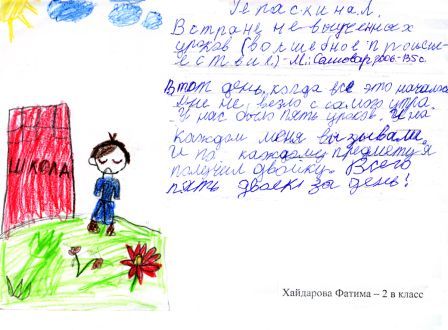 Гераскина Л.
В стране невыученных
уроков (волшебное происше-
ствие) - М.: Самовар 2006-135с.
В тот день, когда всё это началось
мне не везло с самого утра.
У нас было пять уроков. И на
каждом меня вызывали.
И по каждому предмету я
получил двойку. Всего
пять двоек за день!
ШКОЛА
Хайдарова Фатима – 2 в класс